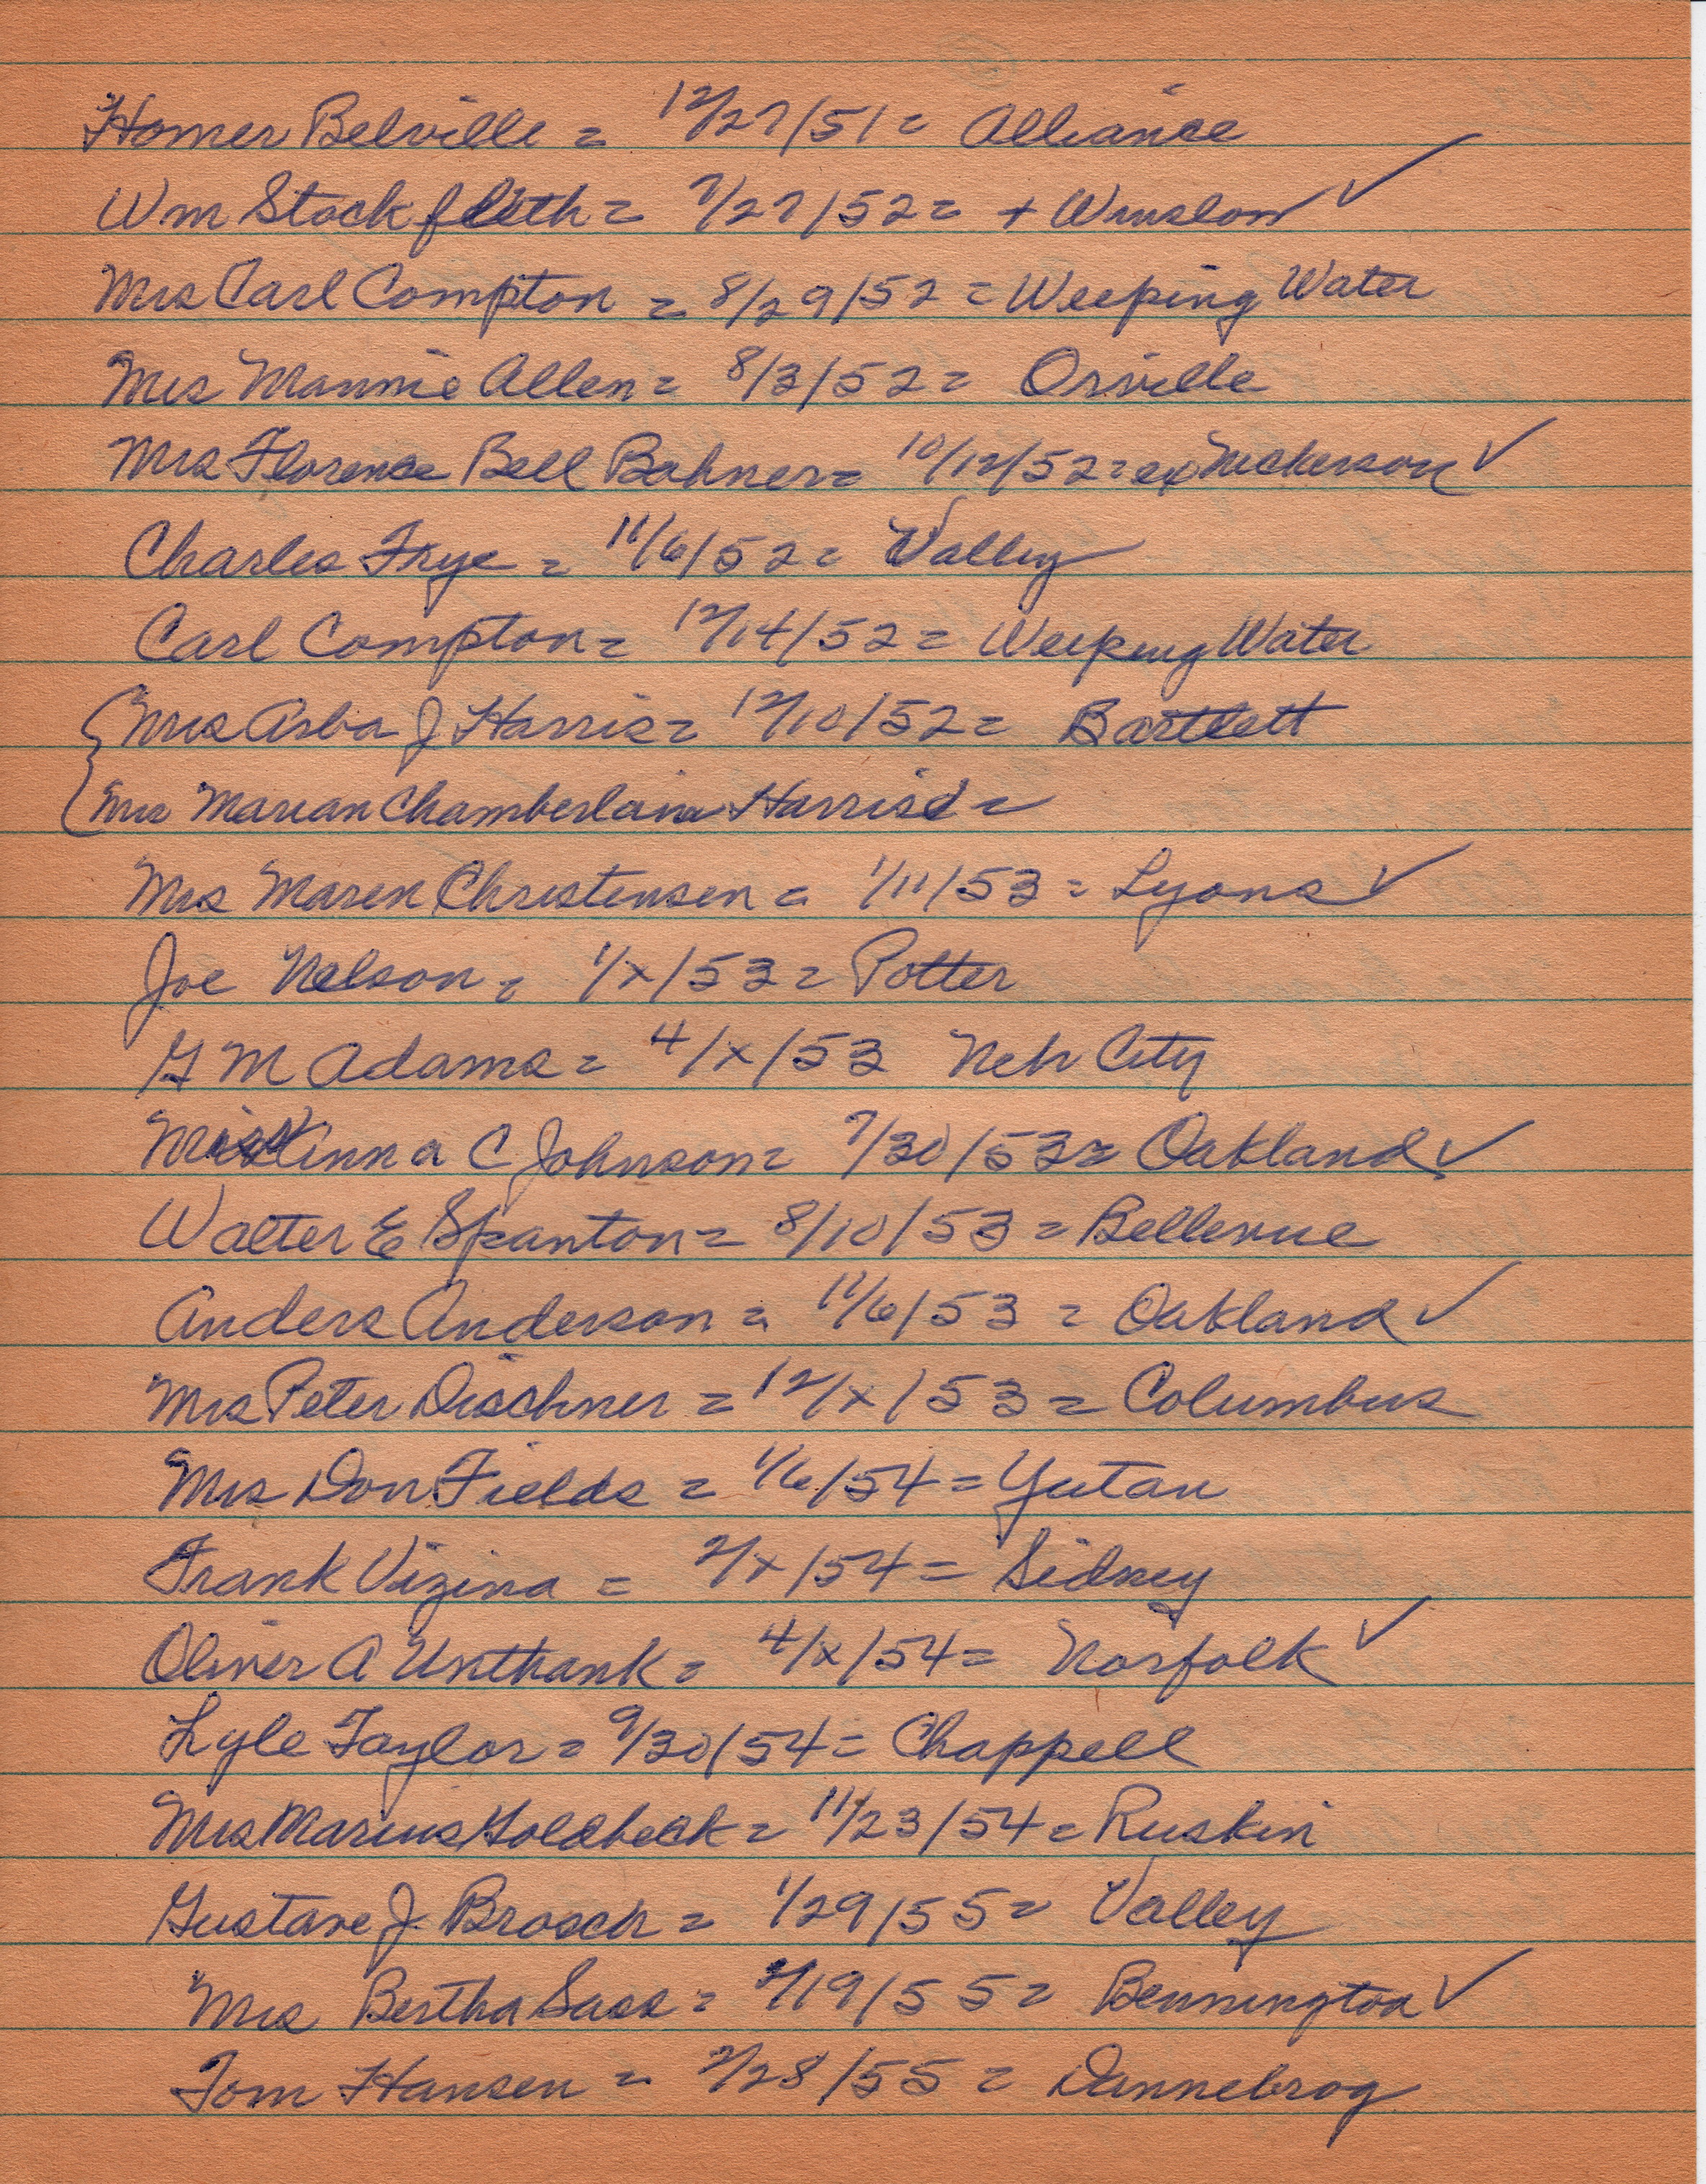 Homer Belville = 12/27/51 = Alliance
Wm Stock fleth = 7/27/52 = + Winslow ✓
Mrs Carl Compton = 8/29/52 = Weeping Water
Mrs Mannie Allen = 8/3/52 = Orville
Mrs Florence Bell Bohner = 10/12/52 = Nickerson ✓
Charles Frye = 11/6/52 = Valley
Carl Compton = 12/14/52 = Weeping Water
Mrs Asba J Harris = 12/10/52 = Bartlett
Mrs Marian Chamberlain Harris =
Mrs Maren Christensen = 1/11/53 = Lyons ✓
Joe Nelson = 1/x/53 = Potter
G M Adams = 4/x/53 Neb City
Minna C Johnson = 7/30/53 = Oakland ✓
Walter E Spanton = 8/10/53 = Bellevue
Anders Anderson = 11/6/53 = Oakland ✓
Mrs Peter Dischner = 12/x/53 = Columbus
Mrs Don Fields = 1/6/54 = Yutan
Frank Vizina = 2/x/54 = Sidney
Oliver A Unthank = 4/x/54 = Norfolk ✓
Lyle Taylor = 9/30/54 = Chappell
Mrs Marius Holdbeck = 11/23/54 = Ruskin
Gustave J Brosch = 1/29/55 = Valley
Mrs Bertha Sass = 2/19/55 = Bennington ✓
Tom Hansen = 2/28/55 = Dannebrog